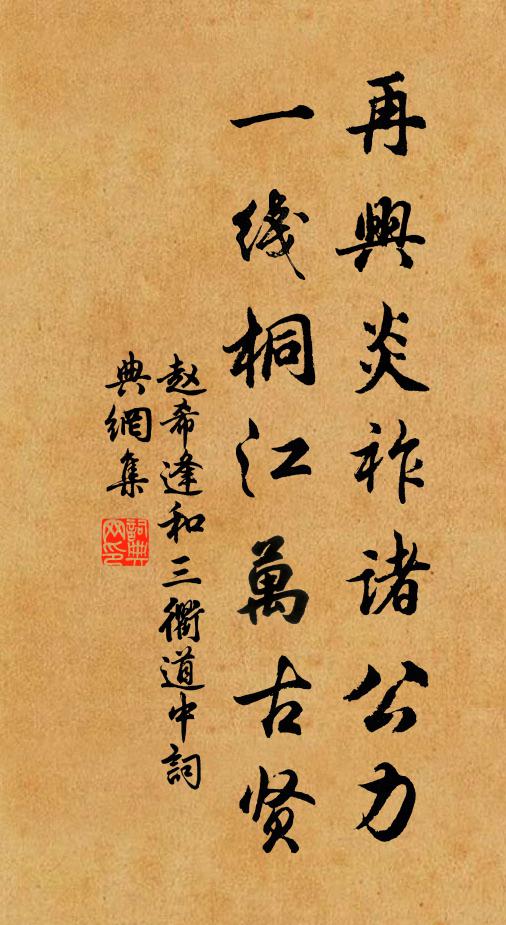 再興炎祚诸公力
一线桐江萬古贤
赵希逢和三衢道中詞
典網集
詞典網印